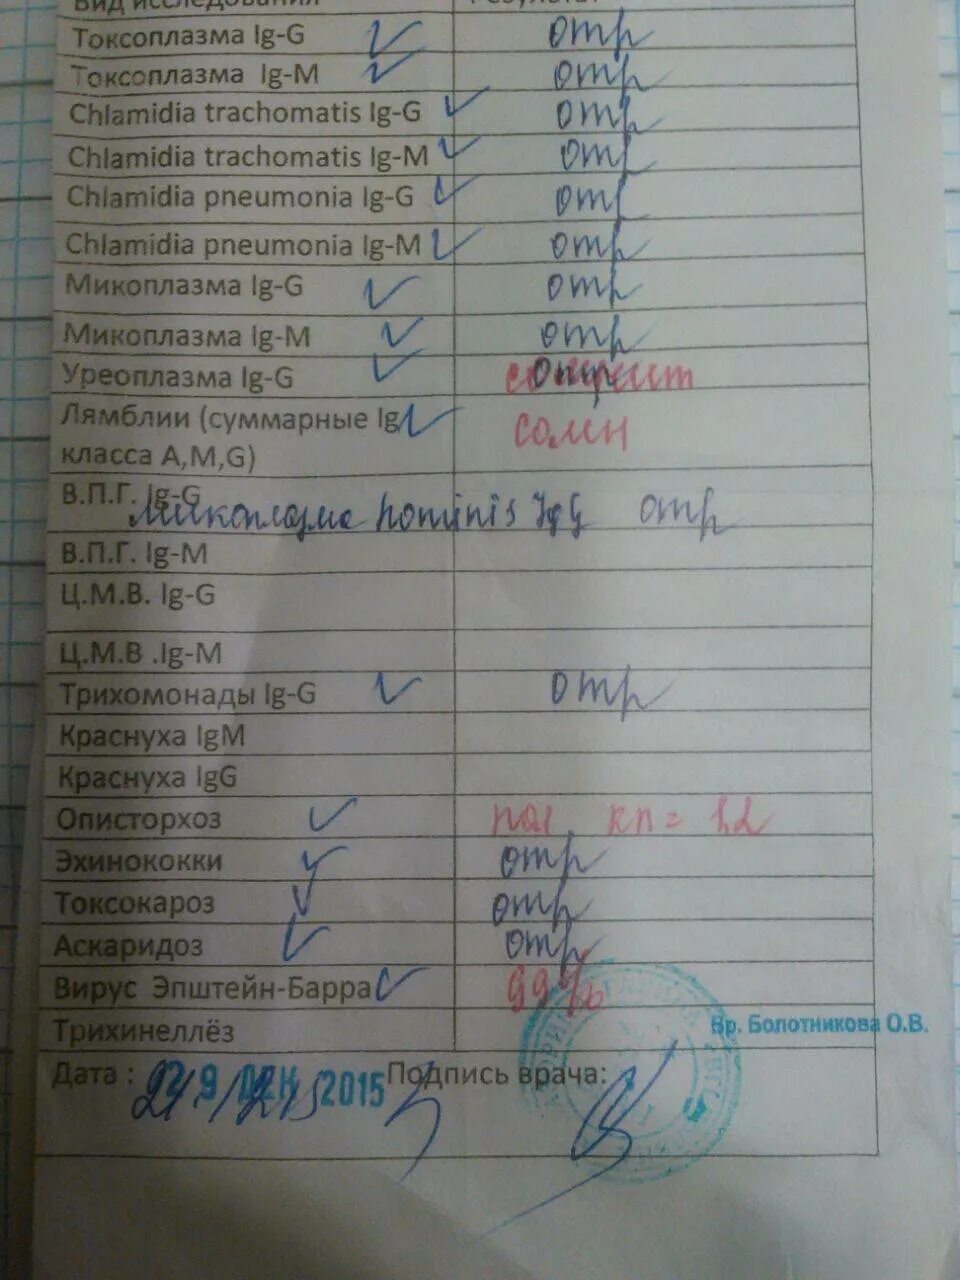 Вид исследования Результат
Токсоплазма Ig-G отр
Токсоплазма Ig-M отр
Chlamidia trachomatis Ig-G отр
Chlamidia trachomatis Ig-M отр
Chlamidia pneumonia Ig-G отр
Chlamidia pneumonia Ig-M отр
Микоплазма Ig-G отр
Микоплазма Ig-M отр
Уреоплазма Ig-G отр
Лямблии (суммарные Ig сомн
класса A,M,G)
В.П.Г. Ig-G
Микоплазма hominis IgG отр
В.П.Г. Ig-M
Ц.М.В. Ig-G
Ц.М.В .Ig-M
Трихомонады Ig-G отр
Краснуха IgM
Краснуха IgG
Описторхоз пол кп = 1,2
Эхинококки отр
Токсокароз отр
Аскаридоз отр
Вирус Эпштейн-Барра 99%
Трихинеллёз
Вр. Болотникова О.В.
Дата : 29 ДЕК 2015 Подпись врача: